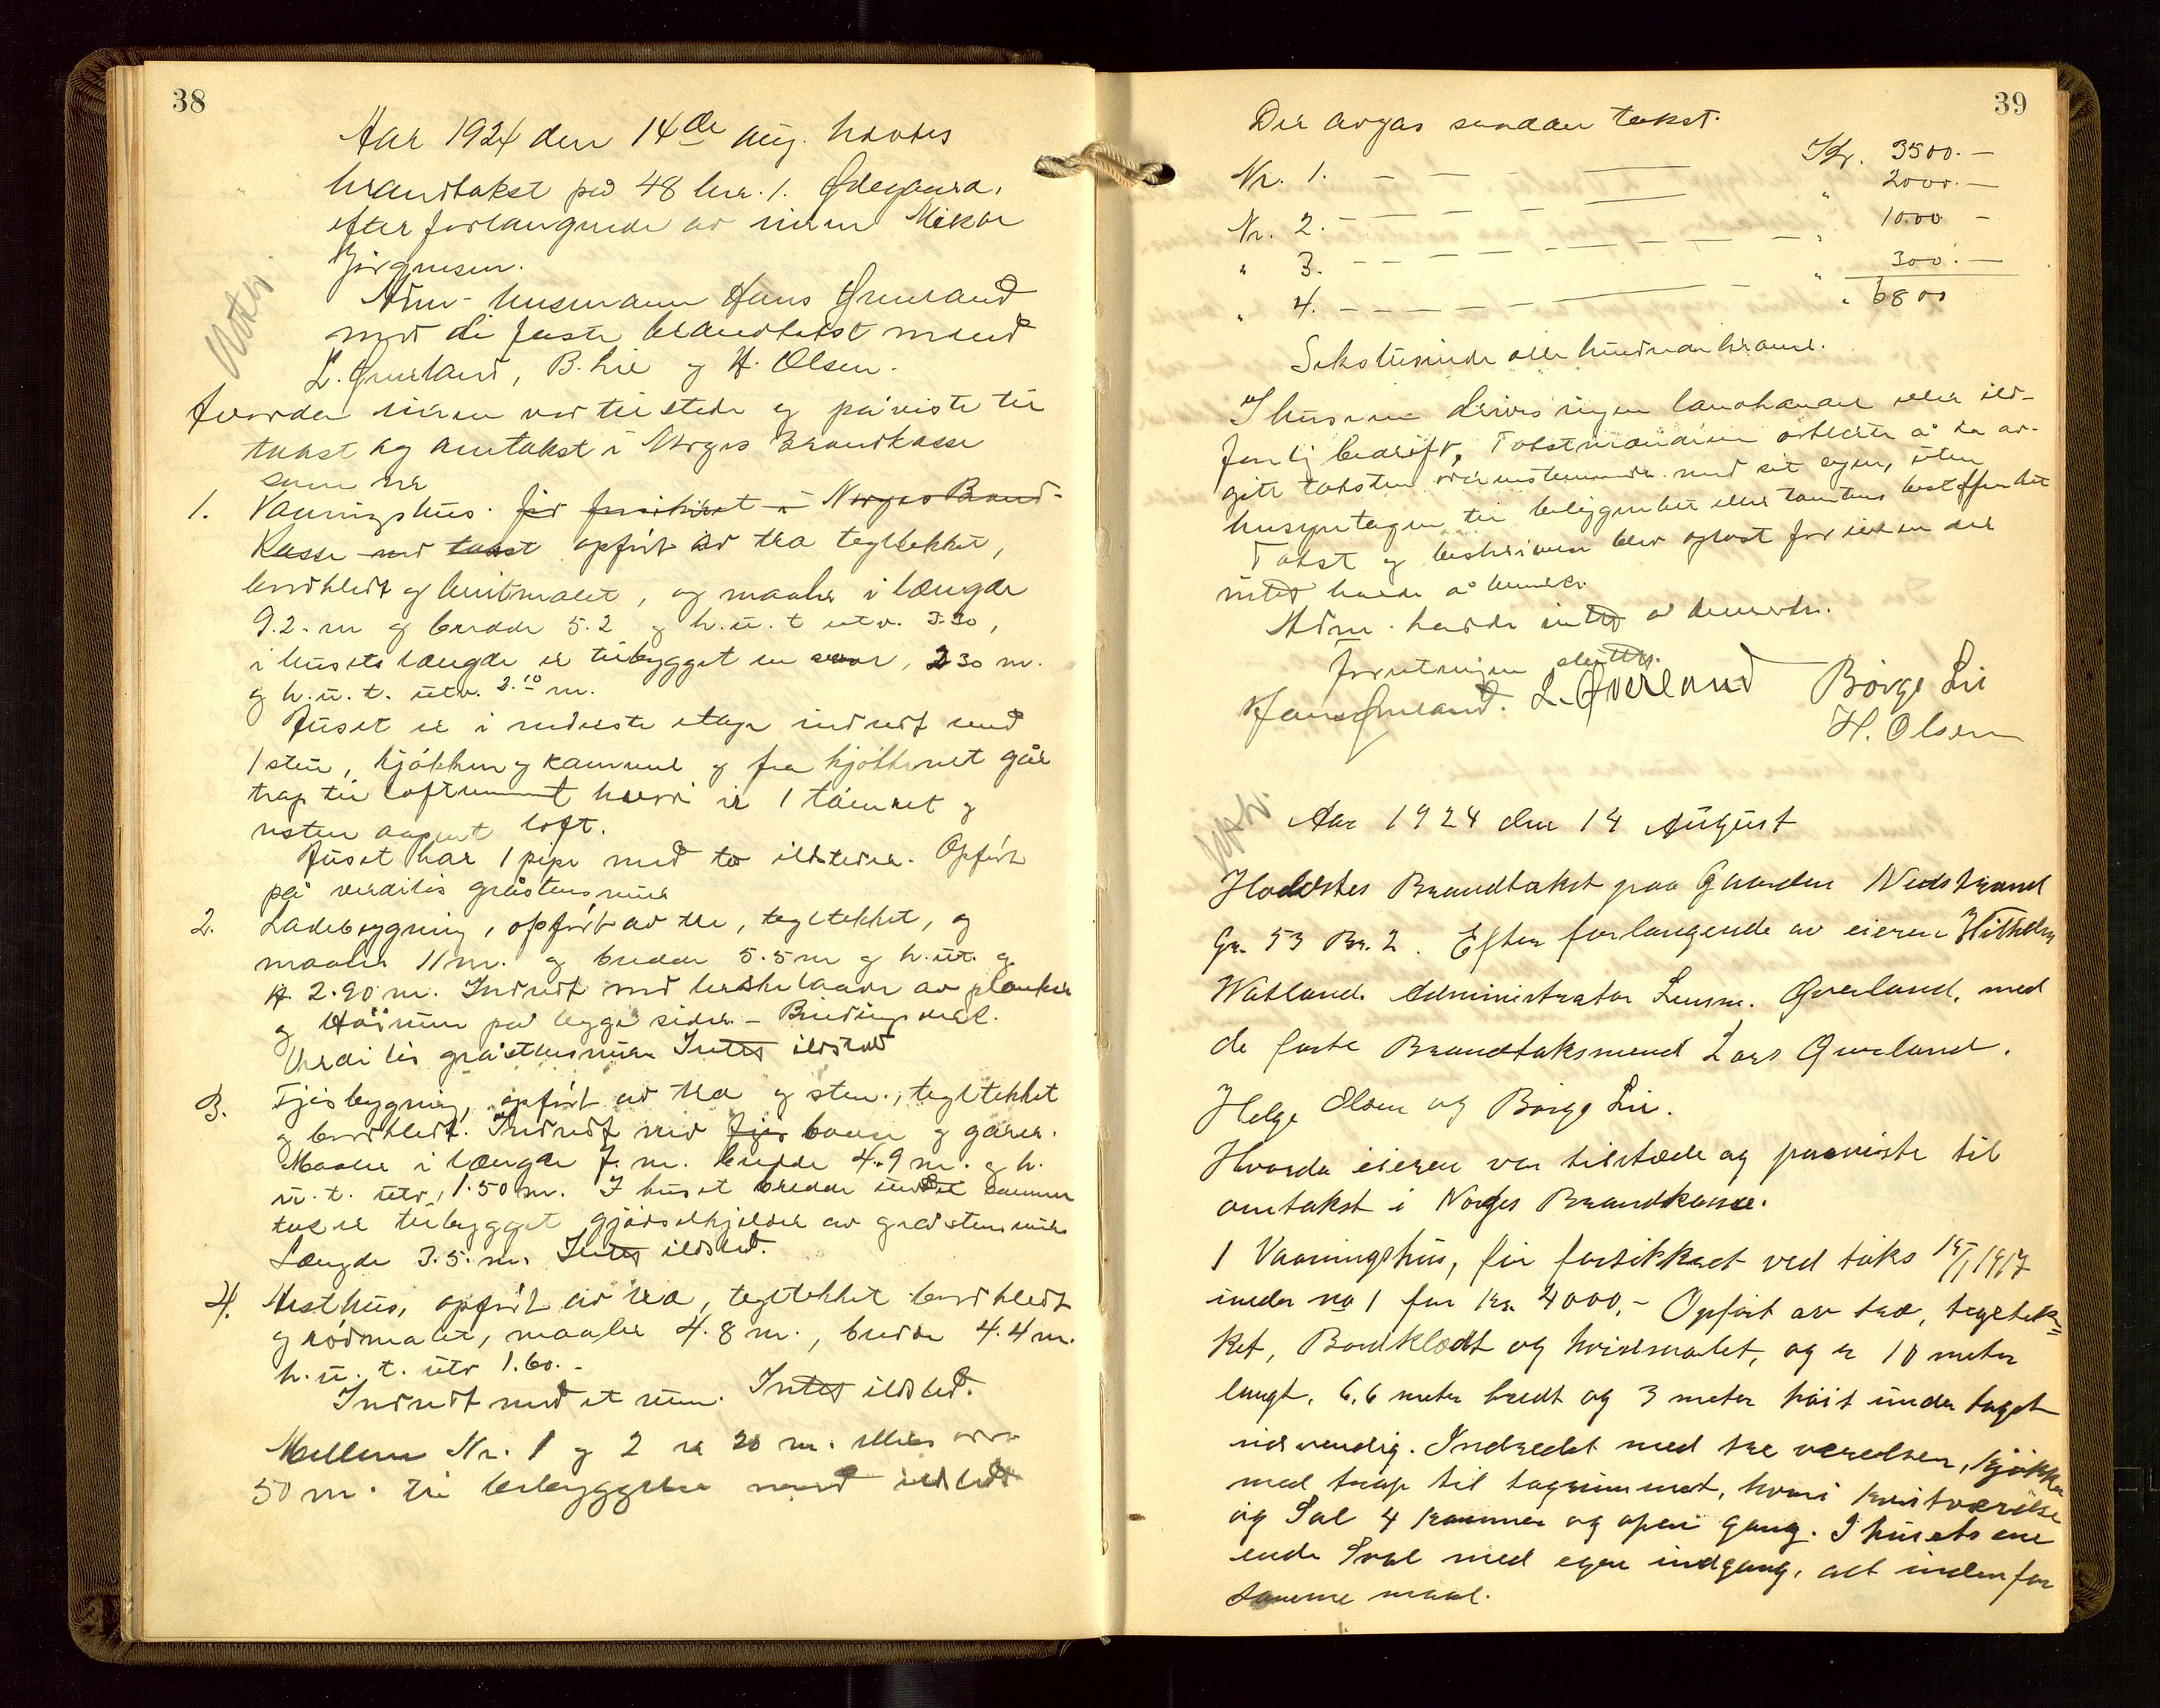 38
Aar 1924 den 14de aug. havdes
brandtakst på 48 br.nr. 1. Ødegaard,
efter forlangende av eieren Mikal
Jörgensen.
Notert
Adm. lensmann Hans Gjerland
med de faste brandtakst mænd
L. Gjerland, B. Lie og H. Olsen.
hvordan eieren var tilstede og påviste til
takst og omtakst i Norges Brandkasse
som er
1. Vaaningshus. før forsikret i Norges Brand-
Kasse ved takst opført av træ tegltekket,
bordklædt og hvitmalet, og maaler i længde
9.2. m og bredde 5.2 og h.u.t utv. 3.30,
i husets længde er tilbygget en sval, 2.30 m.
og h.u.t. utv. 2.10 m.
Huset er i nederste etage indredt med
1 stue, kjökken og kammer og fra kjökkenet går
trap til loftrummet hvori er 1 tömret og
resten aapent loft.
Huset har 1 pipe med to ildsteder. Opført
på verdilös gråstensmur
2. Ladebygning, opført av træ, tegltekket, og
maaler 11 m. og bredde 5.5 m og h.u.t. g
2.90 m. Indredt med treskelaave av planker
og Höirum på begge sider. -
Verdilös gråstensmur Intet ildsted
3. Fjösbygning, opført av træ og sten., tegltekket
og bordklædt. Indredt med fjös baase og garer.
Maaler i længde 7. m. bredde 4.9 m. og h.
u.t. utv, 1.50 m. I huset bredde under samme
tak er tilbygget gjödselkjelder av gråstensmur
Længde 3.5. m. Intet ildsted.
4. Hesthus, opført av træ, tegltekket bordklædt
og rödmalet, maaler 4.8 m., bredde 4.4 m.
h.u.t. utv 1.60. -
Indredt med et rum. Intet ildsted.
Mellem Nr. 1 og 2 er 20 m. ellers over
50 m. til bebyggelse med ildsted
39
Der avgas sandan takst.
Nr. 1. - - - - Kr. 3500. -
Nr. 2. - - - - " 2000. -
" 3. - - - - " 1000 -
" 4. - - - - " 300. -
" 6800
Sekstusinde otte hundrede kroner.
I husene drives ingen landhandel eller ild-
farlig bedrift, Takstmændene erklærte å ha av-
gitt taksten overensstemmende med sit skjøn, uten
hensyntagen til beliggenhet eller tomtens beskaffenhet
Takst og beskrivelse blev oplæst for eieren der
intet havde å bemerke.
Adm. hadde intet å bemerke.
Forretningen sluttet.
Hans Gjerland. L. Gjerland Börge Lie
H. Olsen
Notert.
Aar 1924 den 14 August
Holdtes Brandtakst paa Gaarden Nedstrand
Gr. 53 Br. 2. Efter forlangende av eieren Vilhelm
Watland. Administrator Lensm. Gjerland, med
de faste Brandtaksmend Lars Gjerland.
Helge Olsen og Börge Lie.
Hvorda eieren var tilstæde og paaviste til
omtakst i Norges Brandkasse.
1 Vaaningshus, før forsikkret ved taks 15/1 1917
under no 1 for Kr. 4000,- Opført av træ, tegltek=
ket, Bordklædt og hvidmalet, og er 10 meter
langt, 6,6 meter bredt og 3 meter höit under taget
utvendig. Indredet med tre værelser, kjøkken
med trap til tagrummet, hvori kvistværelse
og Sal 4 kammer og open gang. I husets ene
ende Sval med egen indgang, alt indenfor
samme maal.